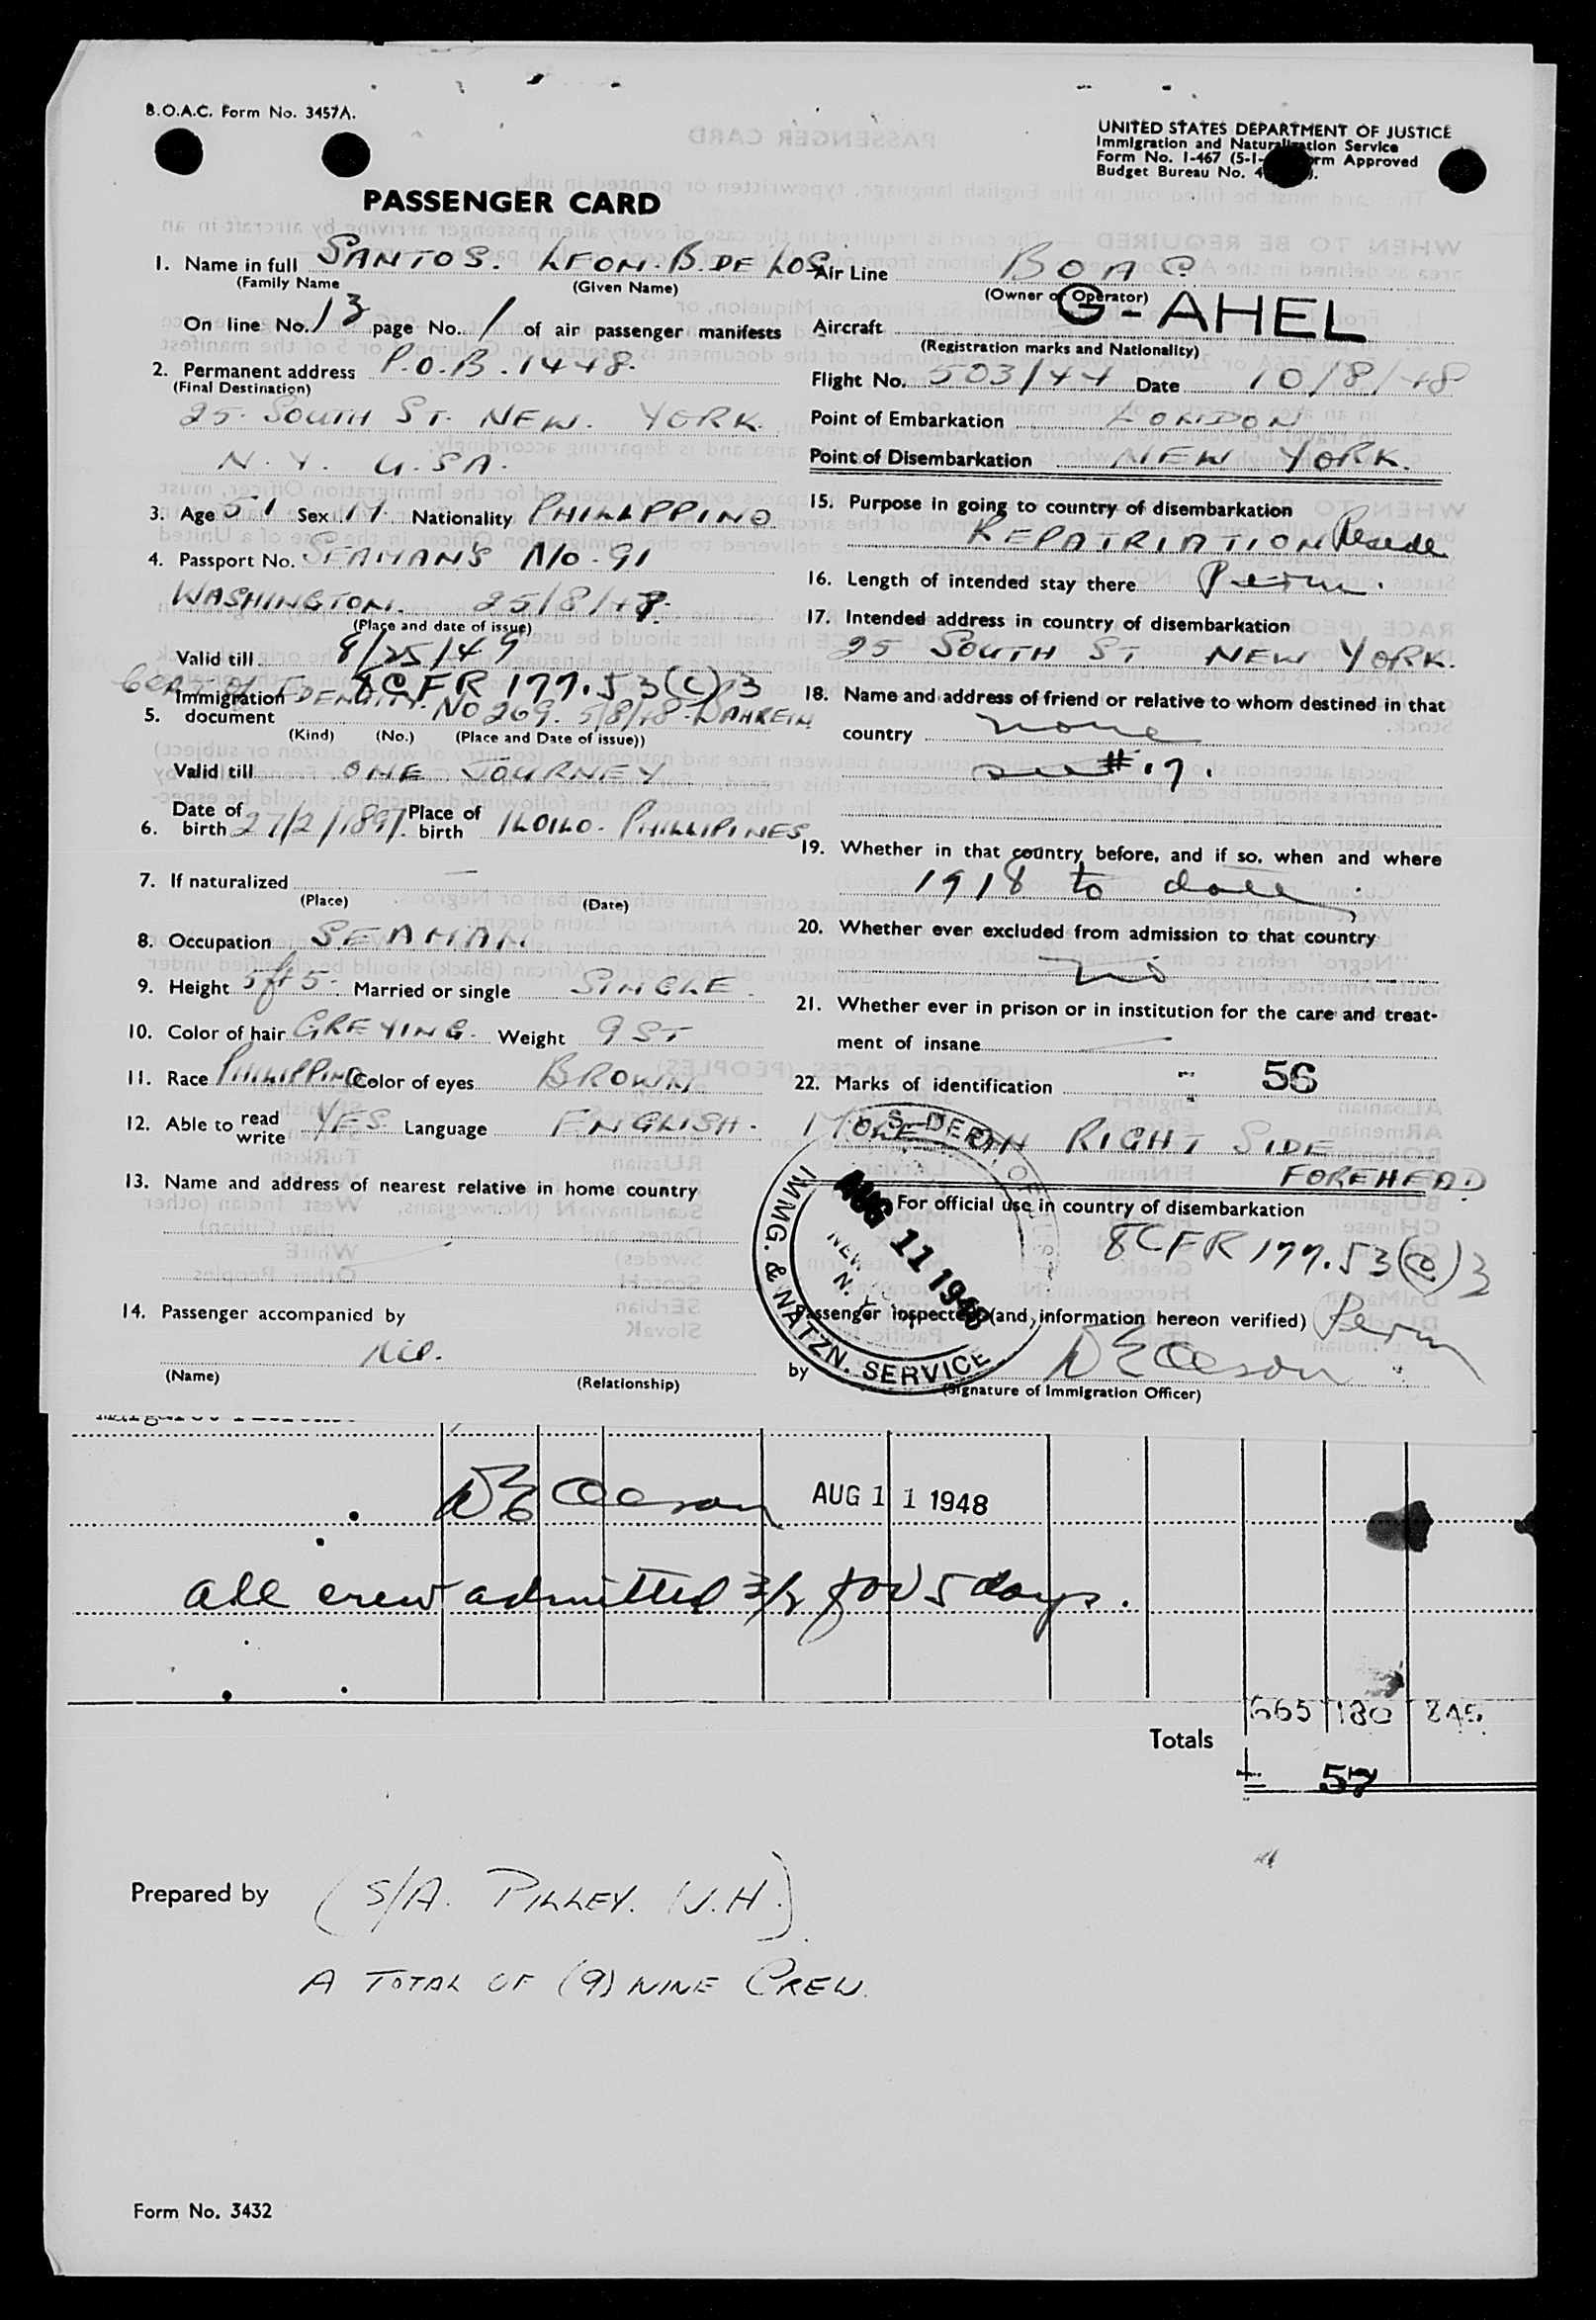 B.O.A.C. Form No. 3457A.
UNITED STATES DEPARTMENT OF JUSTICE
Immigration and Naturalization Service
Form No. I-467 (5-1- Form Approved
Budget Bureau No. 4
PASSENGER CARD
1. Name in full SANTOS. LEON. B. DE LOS
(Family Name (Given Name)
On line No. 13 page No. 1 of air passenger manifests
2. Permanent address P.O.B. 1448.
(Final Destination)
25. SOUTH ST. NEW. YORK.
N.Y. U.SA.
3. Age 51 Sex M. Nationality PHILAPPINO
4. Passport No. SEAMAN'S No. 91
WASHINGTON. 25/8/47.
(Place and date of issue)
Valid till 8/25/49
CERT OF IDENTITY. 8 CFR 177.53(c)3
5. Immigration document NO 269. 5/8/48. BAHREIN
(Kind) (No.) (Place and Date of issue))
Valid till ONE JOURNEY
6. Date of birth 27/2/1897. Place of birth ILOILO. PHILLIPINES
7. If naturalized —
(Place) (Date)
8. Occupation SEAMAN
9. Height 5ft 5. Married or single SINGLE.
10. Color of hair GREYING. Weight 9 ST
11. Race PHILIPPINO Color of eyes BROWN
12. Able to read write YES Language ENGLISH.
13. Name and address of nearest relative in home country
14. Passenger accompanied by
Nil.
(Name) (Relationship)
Air Line BOAC
(Owner or Operator)
Aircraft G-AHEL
(Registration marks and Nationality)
Flight No. 503/44 Date 10/8/48
Point of Embarkation LONDON
Point of Disembarkation NEW YORK.
15. Purpose in going to country of disembarkation
REPATRIATION Reside
16. Length of intended stay there Perm.
17. Intended address in country of disembarkation
25 SOUTH ST NEW YORK.
18. Name and address of friend or relative to whom destined in that
country none
see #17.
19. Whether in that country before, and if so, when and where
1918 to date
20. Whether ever excluded from admission to that country
no
21. Whether ever in prison or in institution for the care and treat-
ment of insane
22. Marks of identification 56
MOLE ON RIGHT SIDE
FOREHEAD.
For official use in country of disembarkation
8 CFR 177.53(c)3
Passenger inspected (and information hereon verified) Perm
by
(Signature of Immigration Officer)
U.S. DEPT. OF JUSTICE
IMMG. & NATZN. SERVICE
AUG 11 1948
NEW
N.Y.
AUG 11 1948
all crew admitted 3/2 for 5 days.
Totals 665 180 245
57
Prepared by (S/A. PILLEY. W.H.)
A TOTAL OF (9) NINE CREW.
Form No. 3432